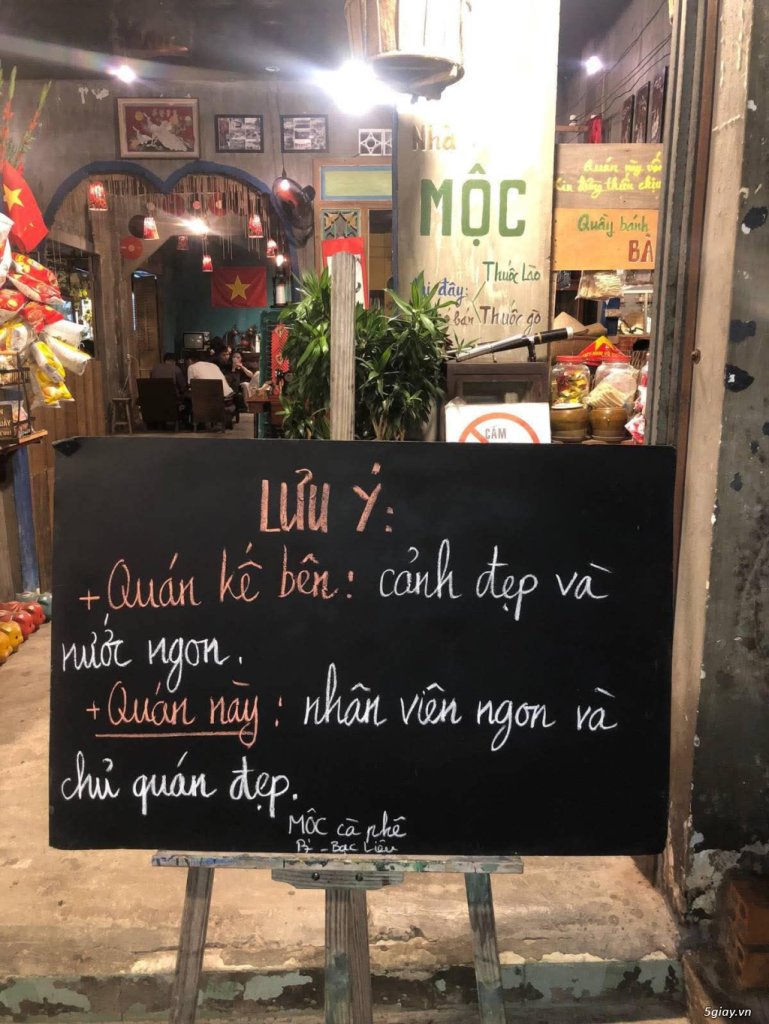 Nhà
MỘC
Thuốc Lào
đây:
bán Thuốc gò
Quán này vốn
Quầy bánh
BÀ
CẤM
LƯU Ý:
+ Quán kế bên: cảnh đẹp và
nước ngon.
+ Quán này: nhân viên ngon và
chủ quán đẹp.
MỘC cà phê
Bạc Liêu
5giay.vn